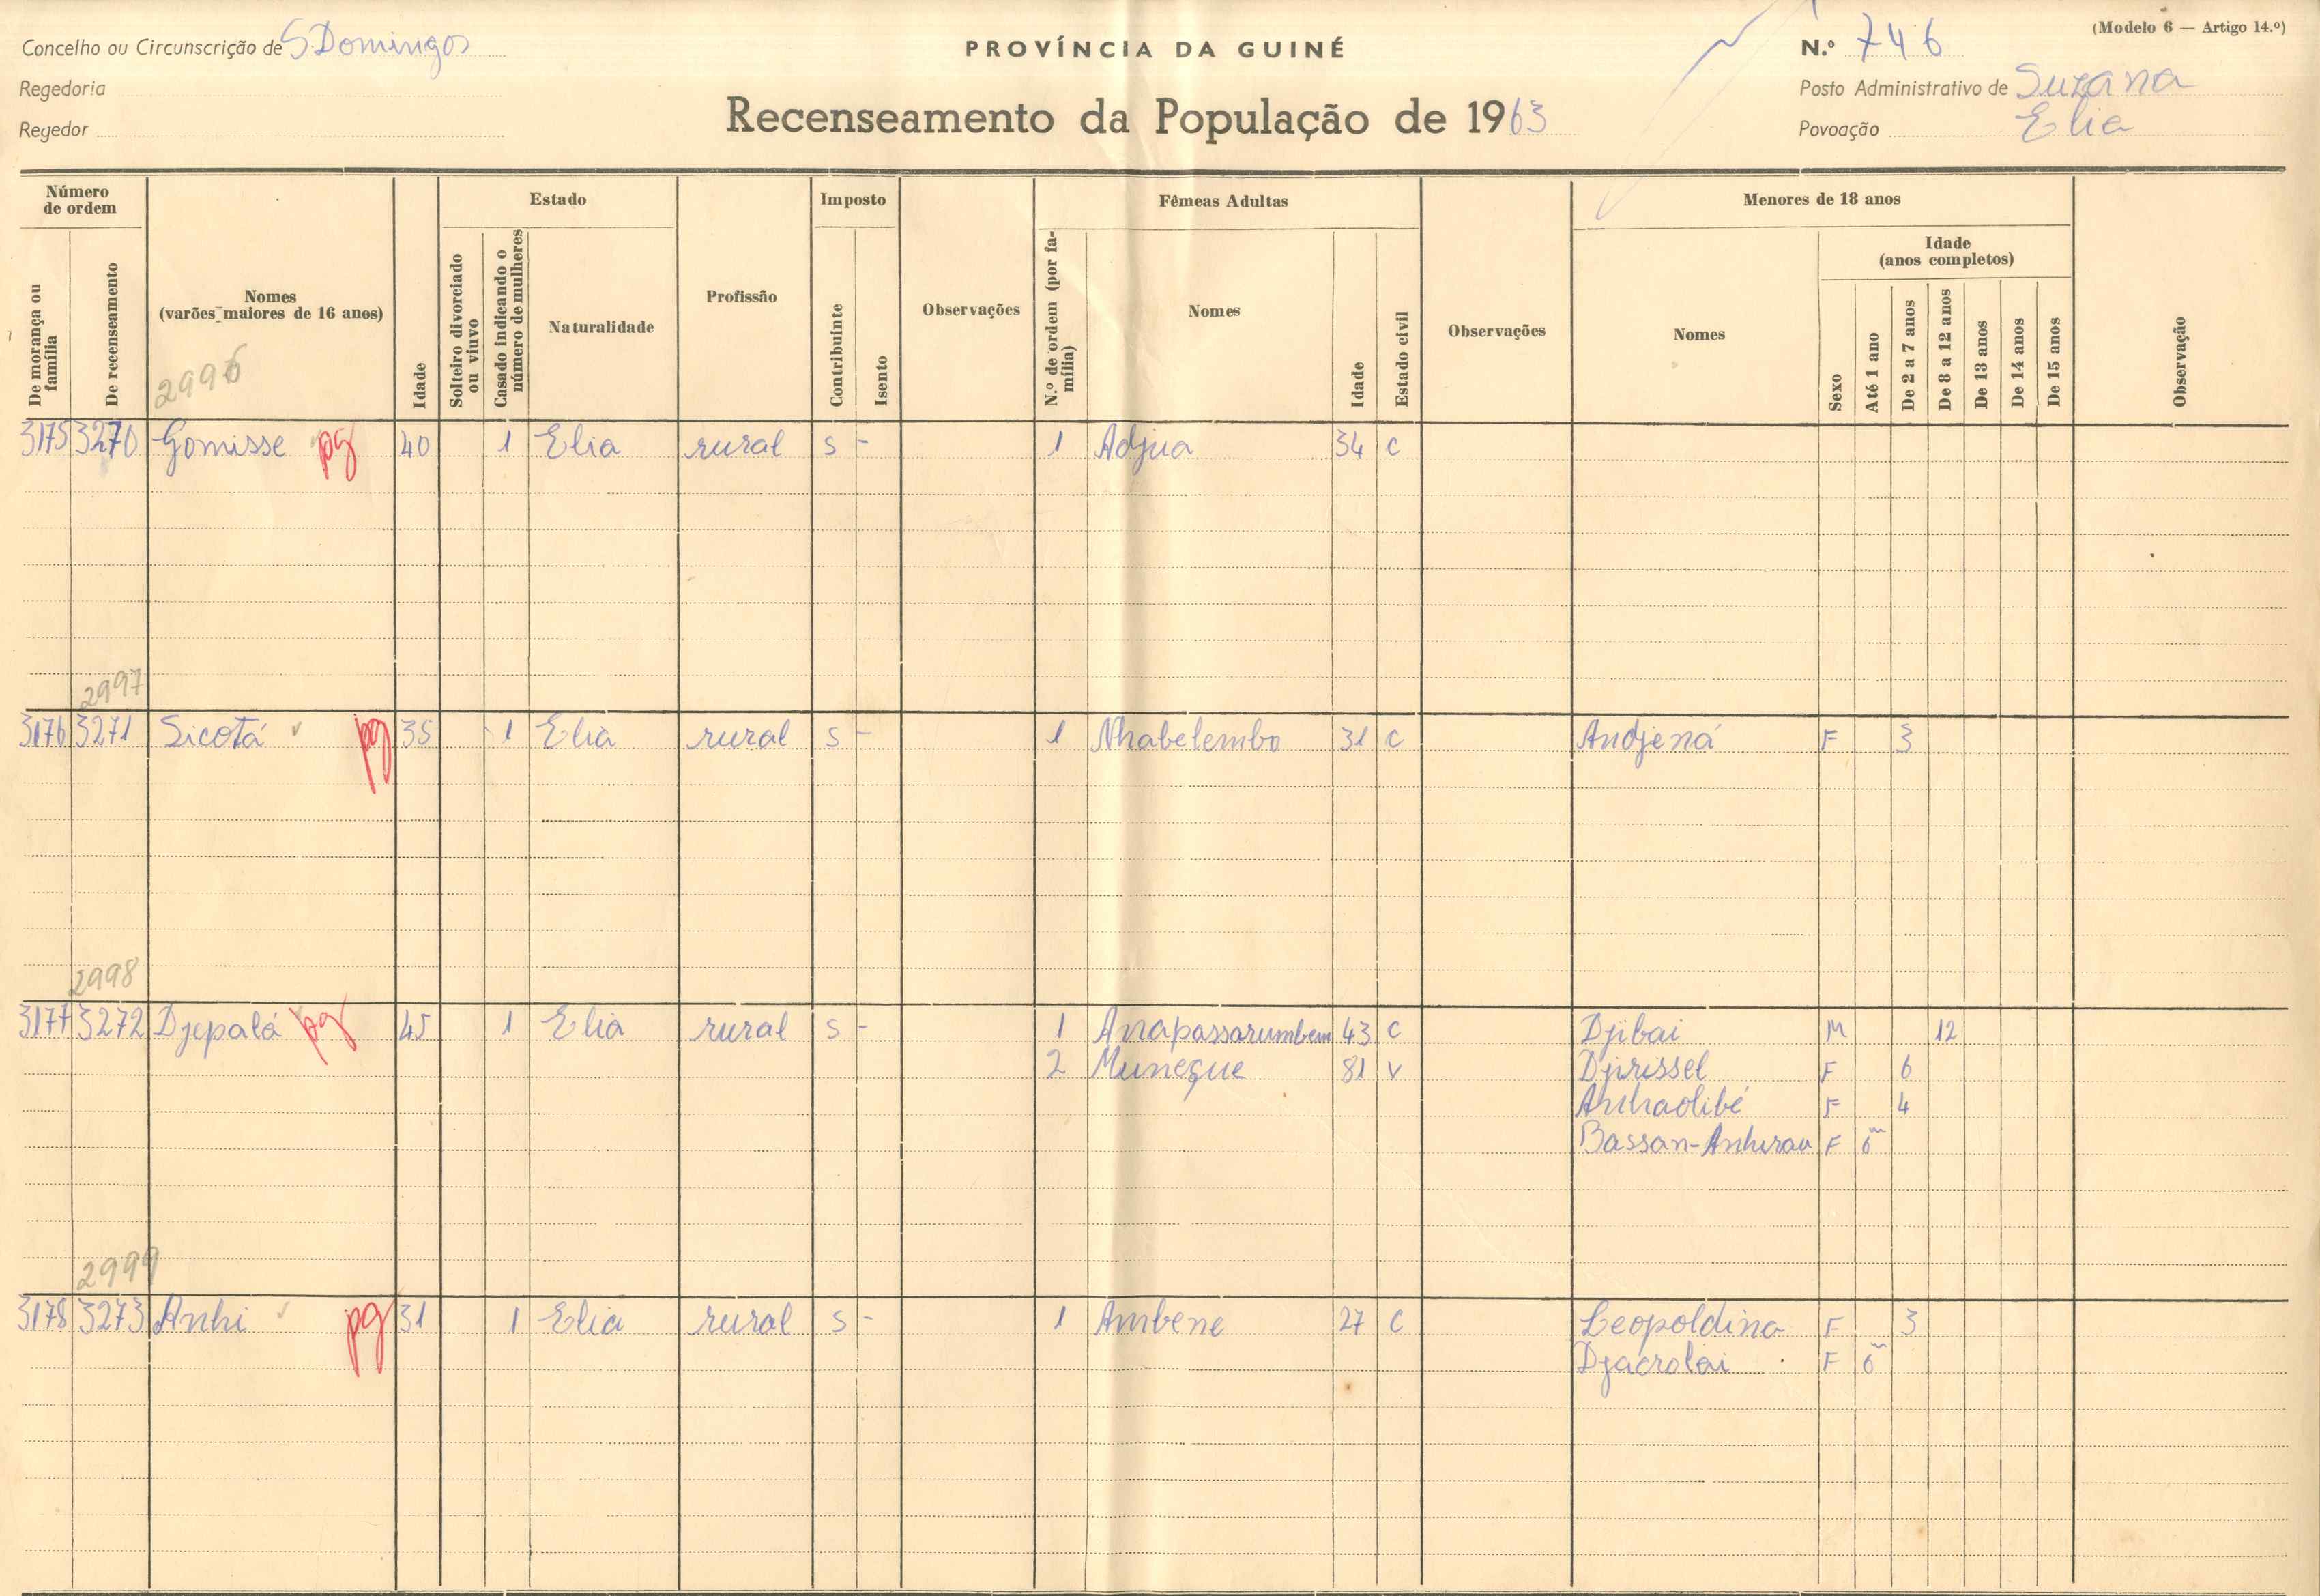 Concelho ou Circunscrição de S. Domingos
PROVÍNCIA DA GUINÉ
N.º 746
(Modelo 6 — Artigo 14.º)
Regedoria
Posto Administrativo de Suzana
Regedor
Recenseamento da População de 1963
Povoação Elia
Número de ordem
Estado
Imposto
Fêmeas Adultas
Menores de 18 anos
De morança ou família
De recenseamento
Nomes
(varões maiores de 16 anos)
Idade
Solteiro divorciado ou viuvo
Casado indicando o número de mulheres
Naturalidade
Profissão
Contribuinte
Isento
Observações
N.º de ordem (por família)
Nomes
Idade
Estado civil
Observações
Nomes
Sexo
Idade
(anos completos)
Até 1 ano
De 2 a 7 anos
De 8 a 12 anos
De 13 anos
De 14 anos
De 15 anos
Observação
2996
3175 3270 Gomisse pg 40 1 Elia rural s - 1 Adjua 34 c
2997
3176 3271 Sicotá pg 35 1 Elia rural s - 1 Nhabelembo 31 c Andjená F 3
2998
3177 3272 Djepalá pg 45 1 Elia rural s - 1 Anapassarumbem 43 c Djibai M 12
2 Muneque 81 v Djirissel F 6
Anhaolibé F 4
Bassan-Anhirau F 6m
2999
3178 3273 Anhi pg 31 1 Elia rural s - 1 Ambene 27 c Leopoldina F 3
Djacrolai F 6m